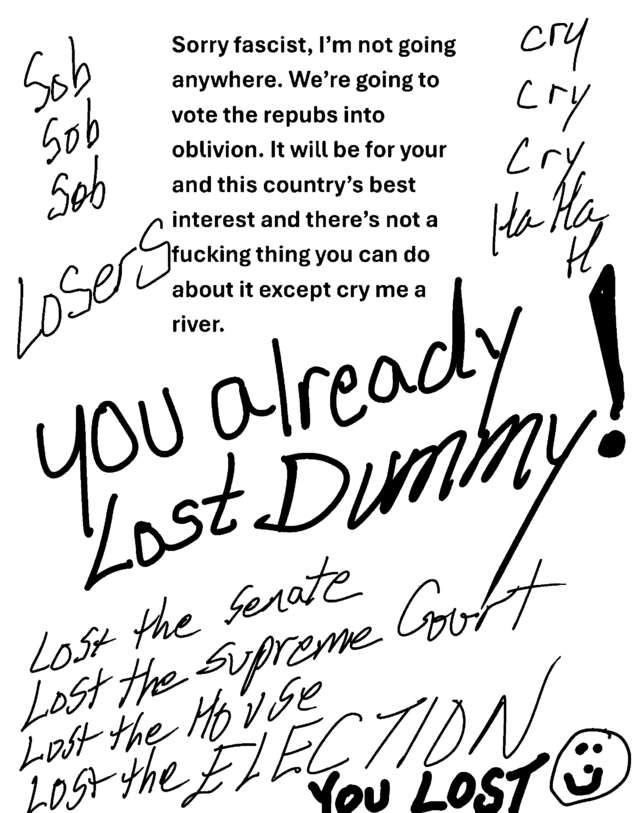 Sob
Sob
Sob
Losers
Sorry fascist, I'm not going
anywhere. We're going to
vote the repubs into
oblivion. It will be for your
and this country's best
interest and there's not a
fucking thing you can do
about it except cry me a
river.
cry
cry
Cry
Ha Ha
H
you already
Lost Dummy!
Lost the Senate
Lost the Supreme Court
Lost the House
Lost the ELECTION
YOU LOST